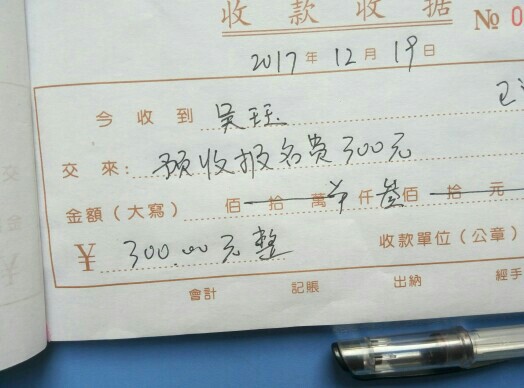 收款收据
№ 0
2017年12月19日
今收到 吴珏
交來: 预收报名费300元
金額(大寫) 佰 拾 萬 仟 叁佰 拾 元
¥ 300.00元整 收款單位(公章)
會計 記賬 出納 經手